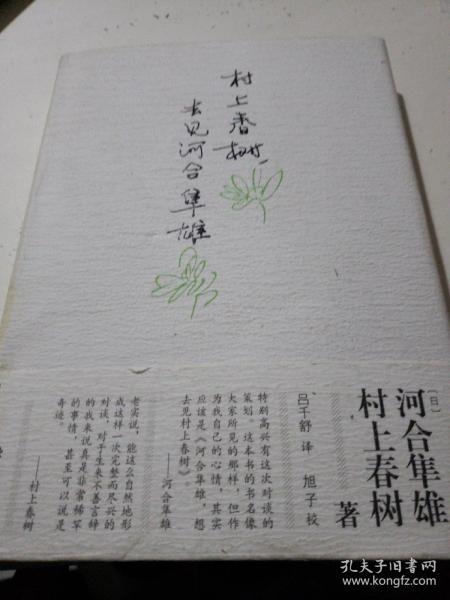 村上春树，
去见河合隼雄
〔日〕
河合隼雄
村上春树
著
吕千舒 译 旭子 校
特别高兴有这次对谈的
策划。这本书的书名像
大家所见的那样，但作
为我自己的心情，其实
应该是《河合隼雄，想
去见村上春树》
——河合隼雄
老实说，能这么自然地形
成这样一次完整而尽兴的
对谈，对于生来不善言辞
的我来说真是非常稀罕
的事情，甚至可以说是
奇迹。
——村上春树
孔夫子旧书网
www.kongfz.com